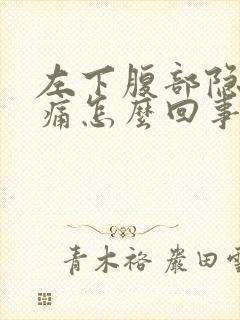 左下腹部隐
痛怎麼回事
青木裕 嚴田雪